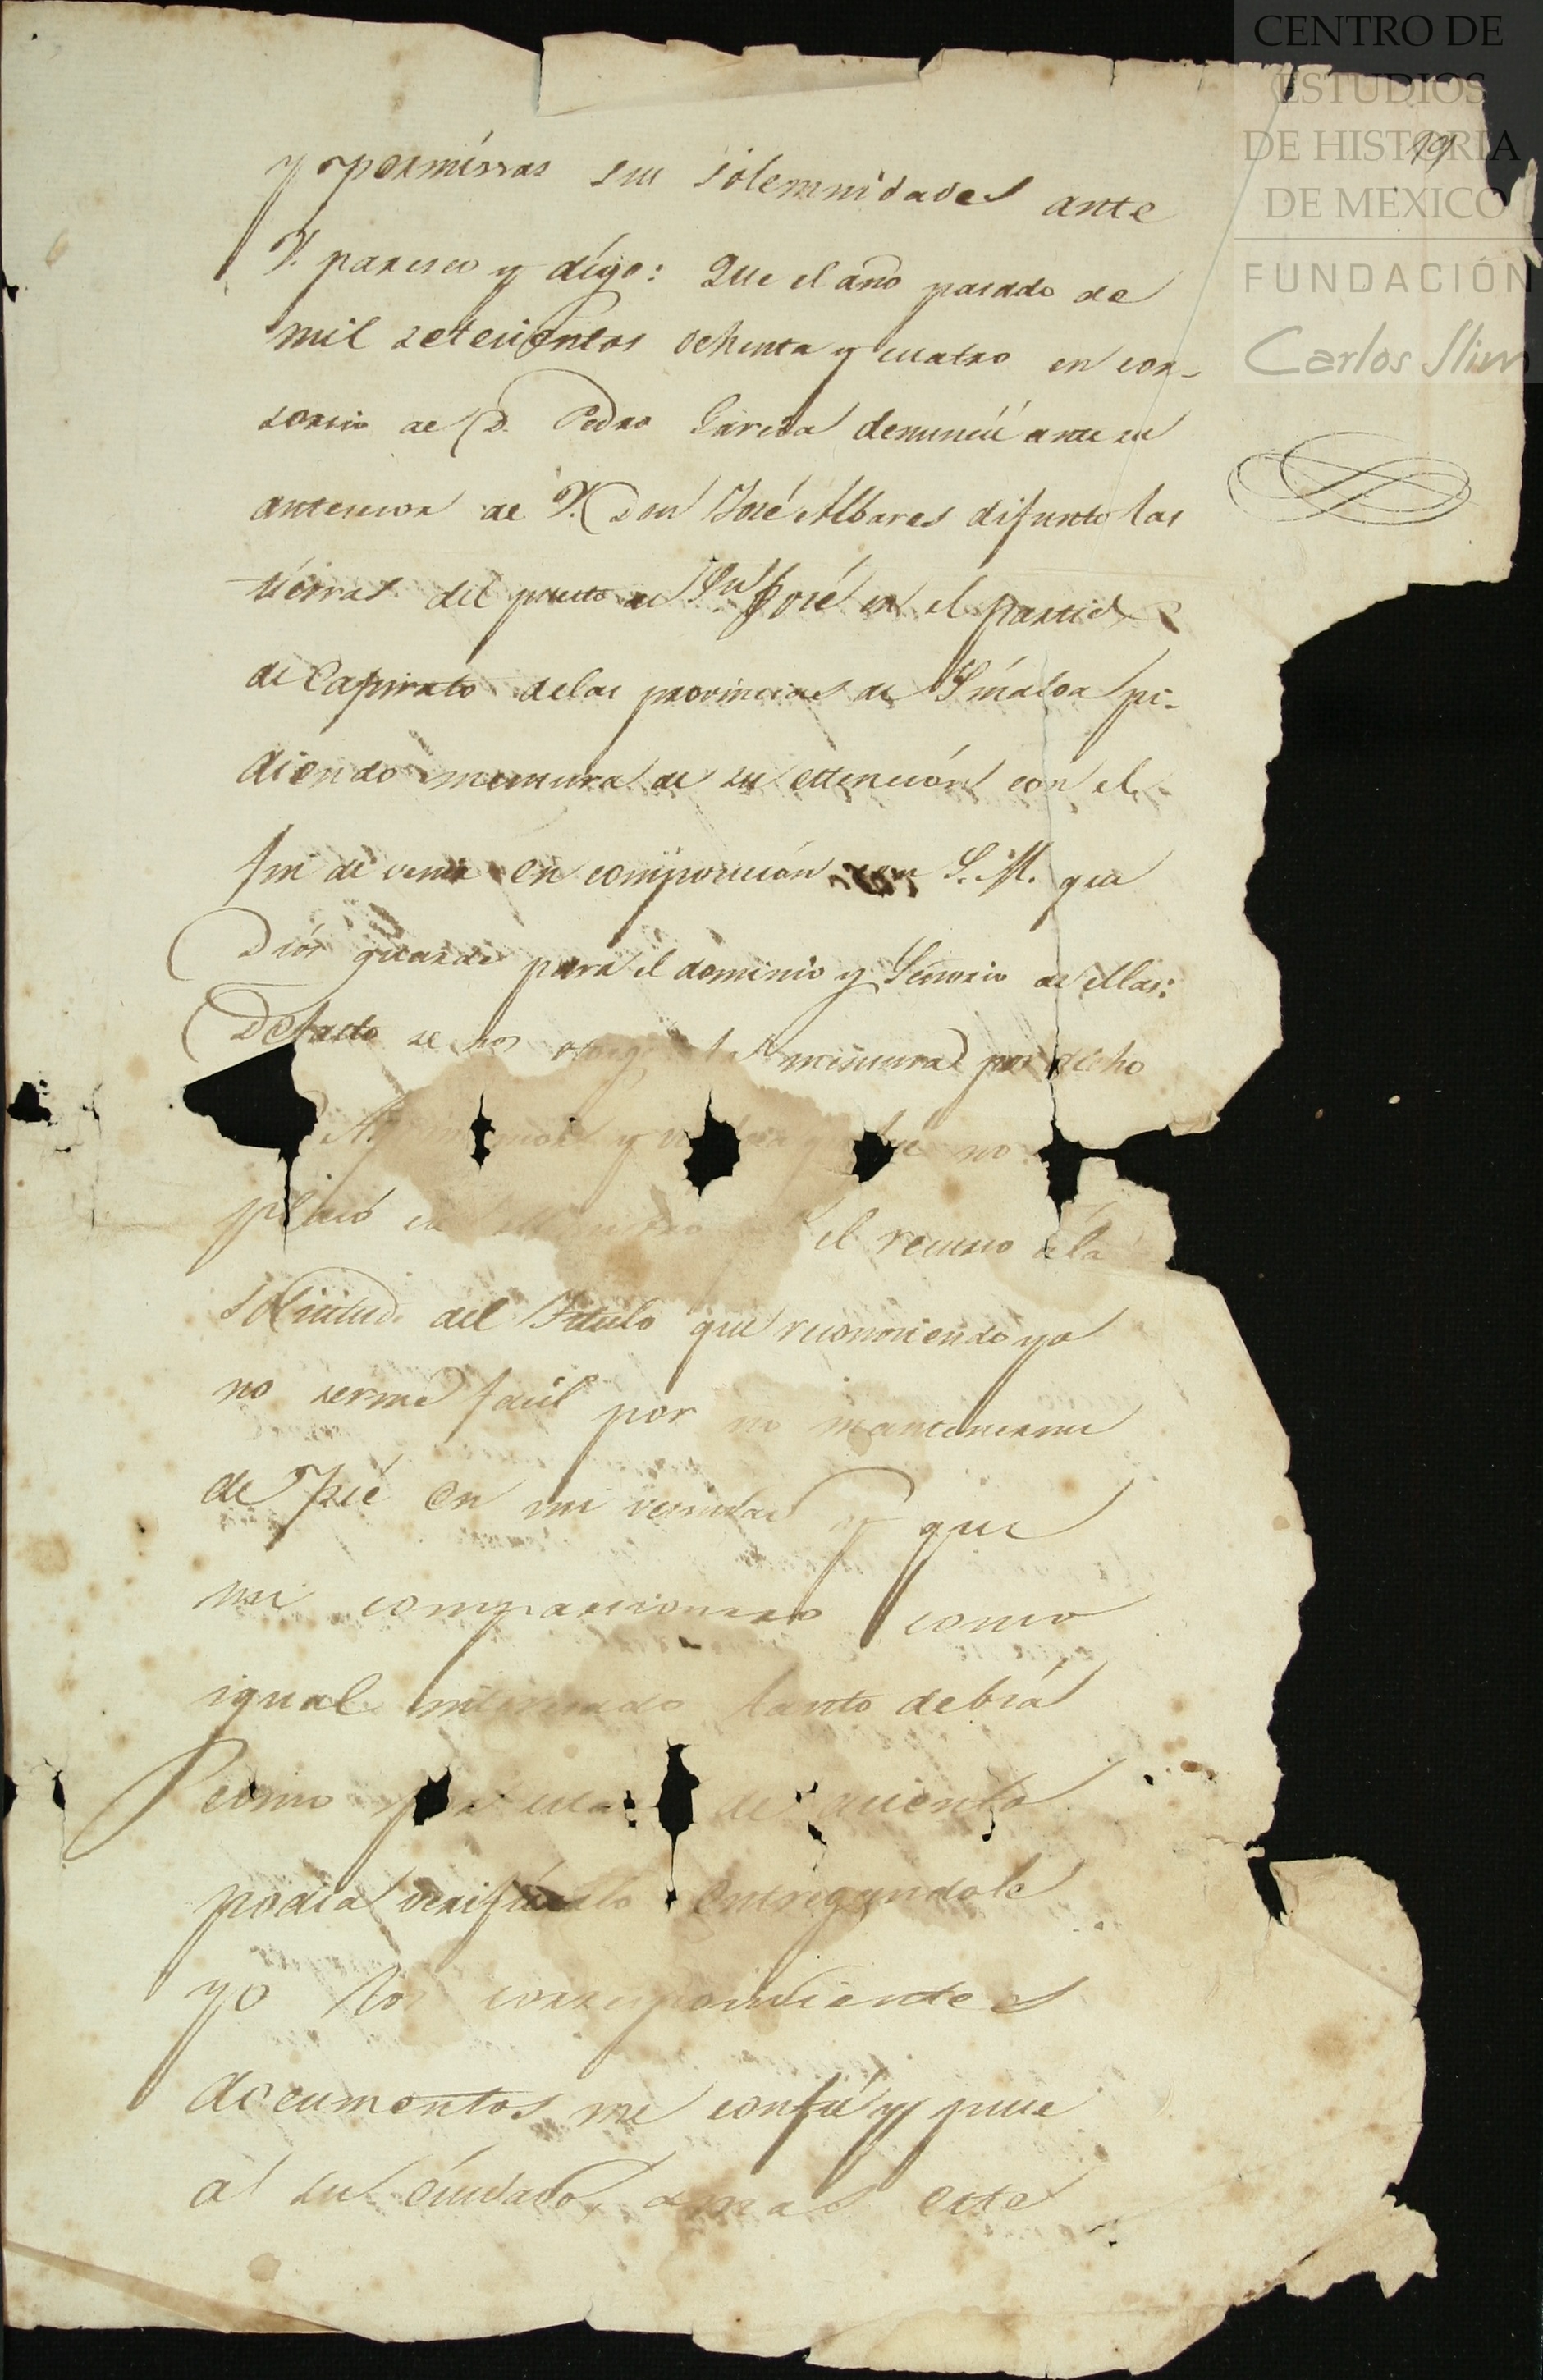 CENTRO DE
ESTUDIOS
DE HISTORIA
DE MEXICO
FUNDACIÓN
Carlos Slim
19
y permissas sus solemnidades ante
V. paresco y dígo: Que el año pasado de
mil setecientos ochenta y cuatro en con-
sorcio de D. Pedro Garcia denuncié ante su
antecesor de V. Don José Albares difunto las
tierras del puesto de Sn José en el partido
de Capirato delas provincias de Sinaloa pi-
diendo mensura de su ettención con el
fin de venir en composición con S. M. que
Diós guarde para el dominio y Señorio de ellas:
Defacto se nos mensura por dicho
y no
el recurso ála
solicitud del Titulo que reconociendo yo
no serme facil por no mantenerme
de pié en mi vecindad y que
mi comparcionero como
igual interesado tanto debia
como de quento
podia verificarlo entregandole
yo los correspondientes
documentos me confié y puse
al su cuidado, amas este